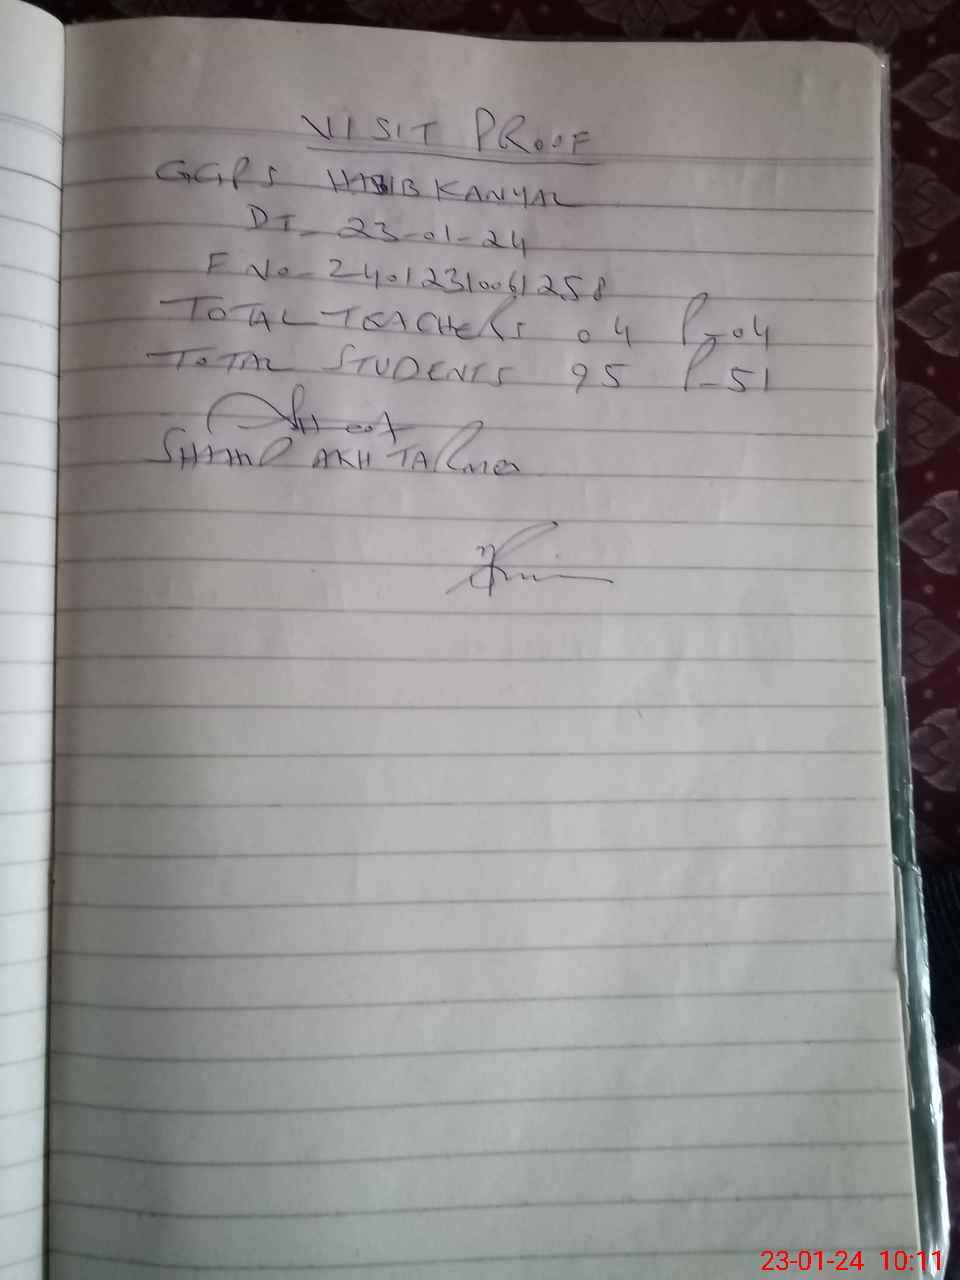 VISIT PROOF
GGPS HABIB KANYAL
DT - 23-01-24
F No - 24012310061258
TOTAL TEACHERS 04 P-04
TOTAL STUDENTS 95 P-51
AKHTAR
23-01-24 10:11